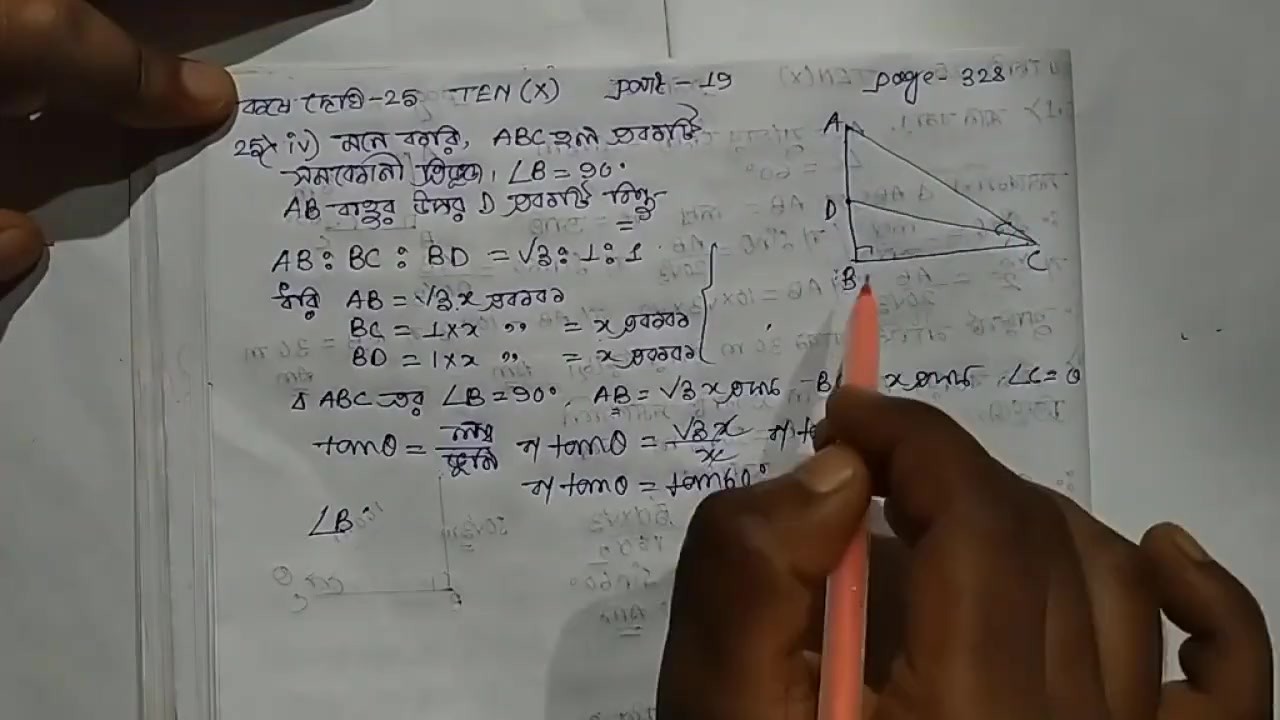 কষে দেখি-25 TEN (X) part - 19 page- 328
25) iv) মনে করি, ABC হলে একটি
সমকোণী ত্রিভুজ, ∠B = 90°
AB বাহুর উপর D একটি বিন্দু
AB : BC : BD = √3 : 1 : 1
ধরি AB = √3 x একক
BC = 1 × x ,, = x একক
BD = 1 × x ,, = x একক
ABC এর ∠B = 90°, AB = √3 x একক x একক ∠C = θ
tanθ = লম্ব/ভূমি বা tanθ = √3x/x
বা tanθ = tan60°
∠B
A
D
B
C